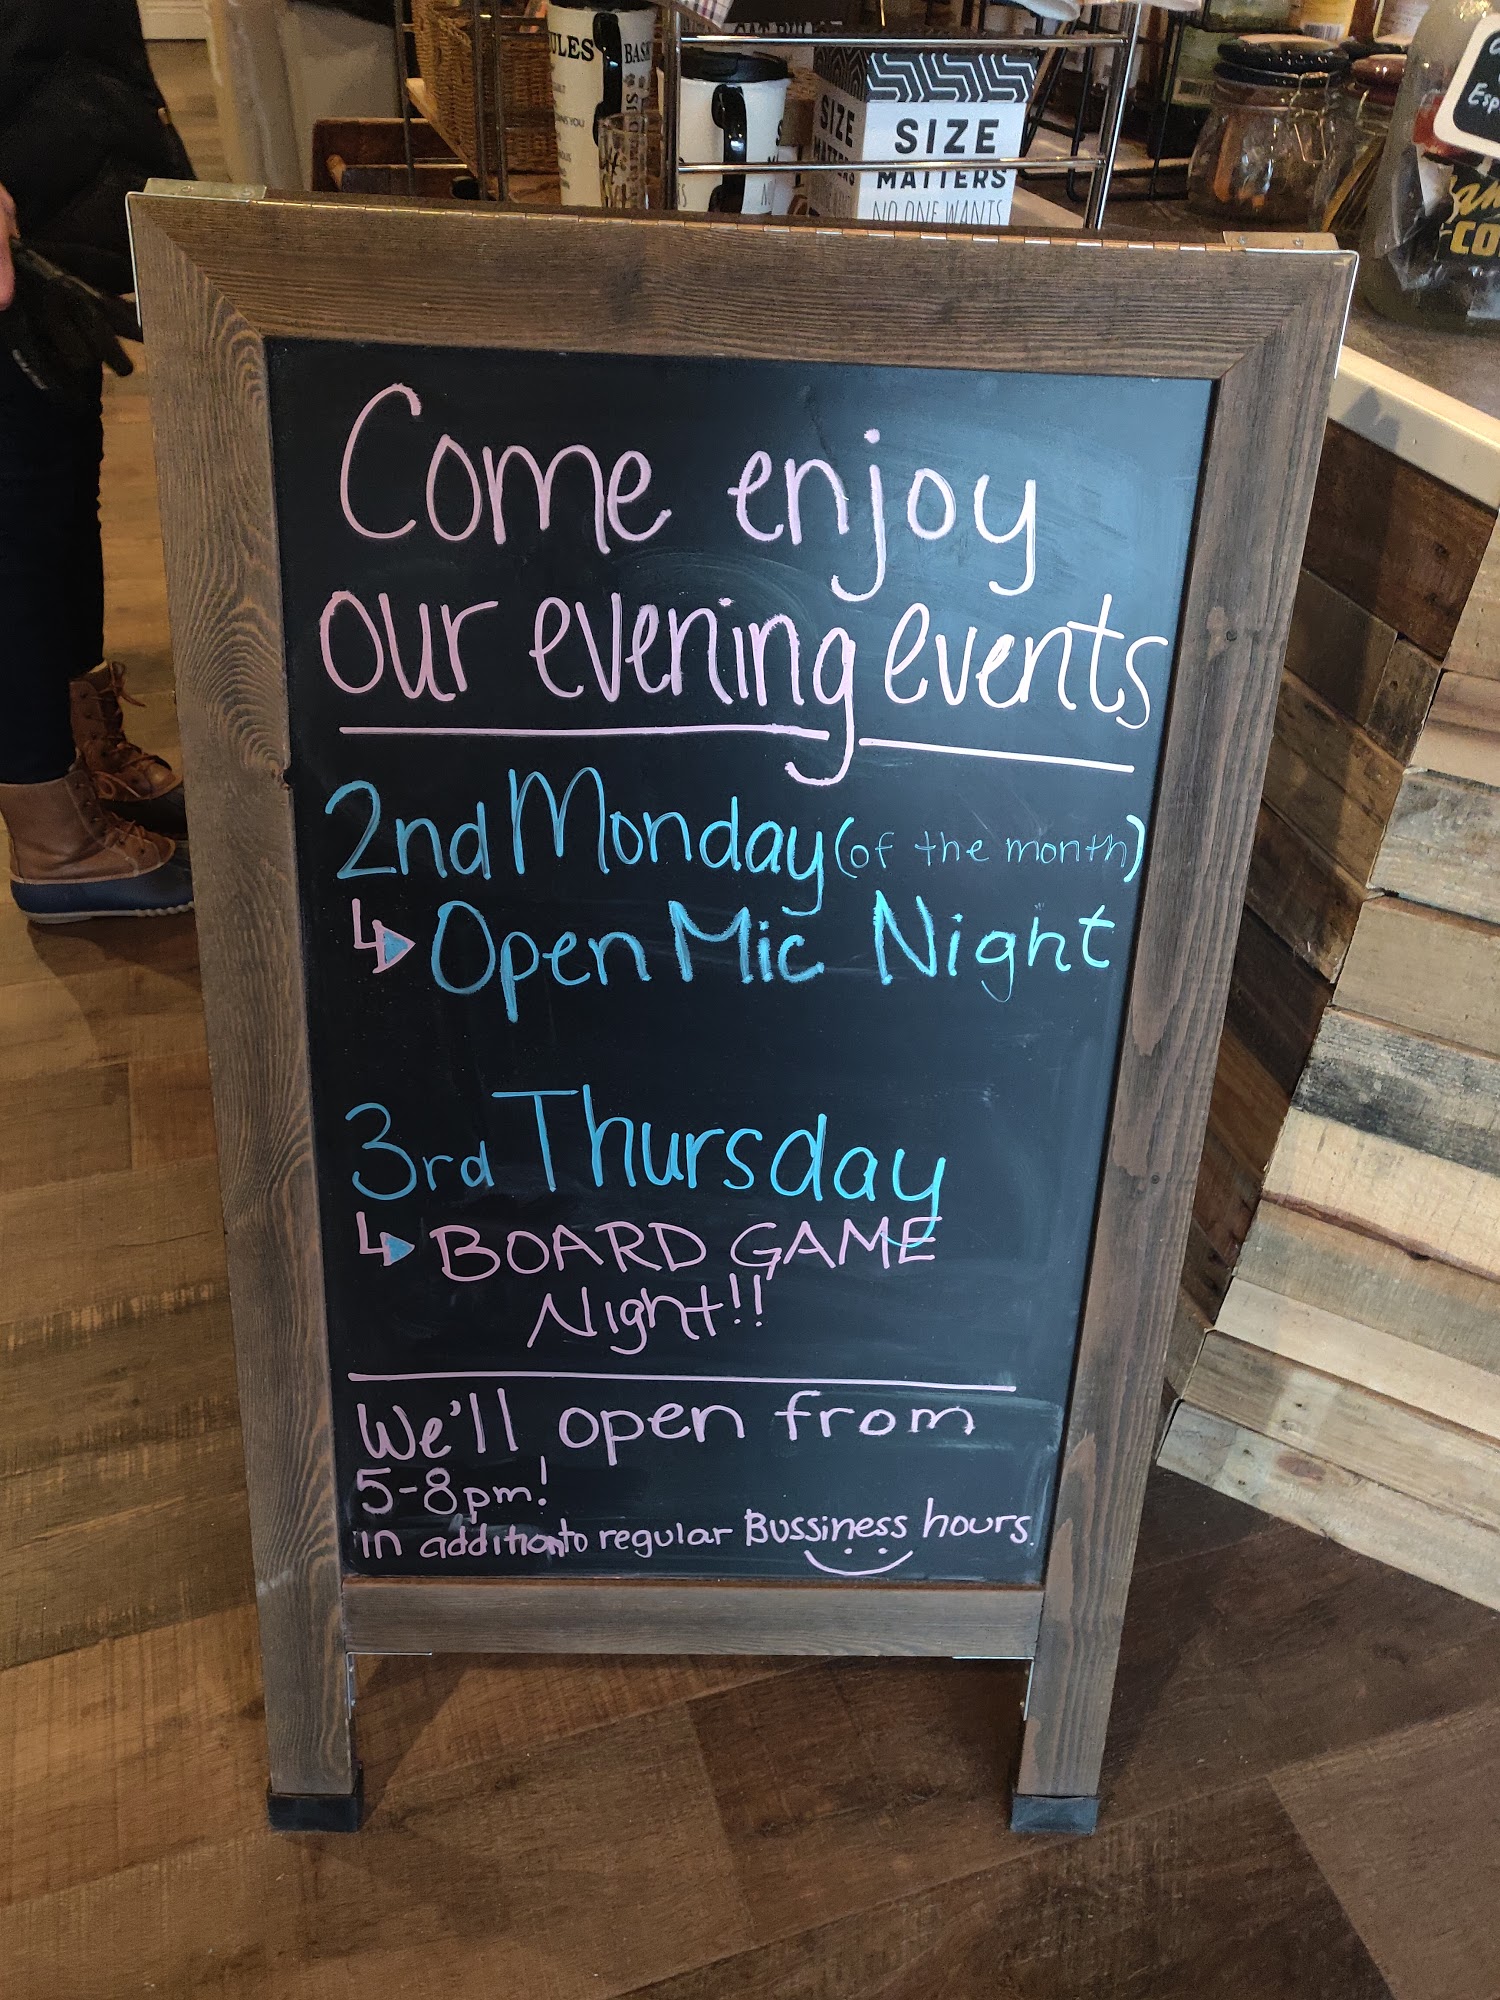 ULES
BASK
SIZE
MATTERS
SIZE
MATTERS
NO ONE WANTS
Esp
CO
Come enjoy
our evening events
2nd Monday (of the month)
Open Mic Night
3rd Thursday
BOARD GAME
Night!!
We'll open from
5-8pm!
in addition to regular Bussiness hours